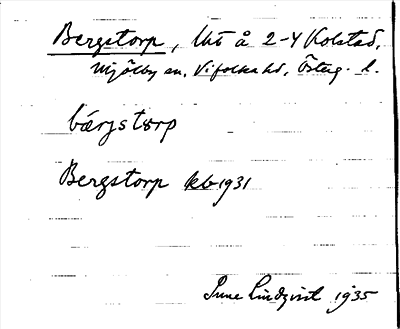 Bergstorp, lht å 2-4 Kolstad,
Mjölby sn, Vifolka hd, Österg. l.
bárjstorp
Bergstorp kb 1931
Sune Lindqvist 1935